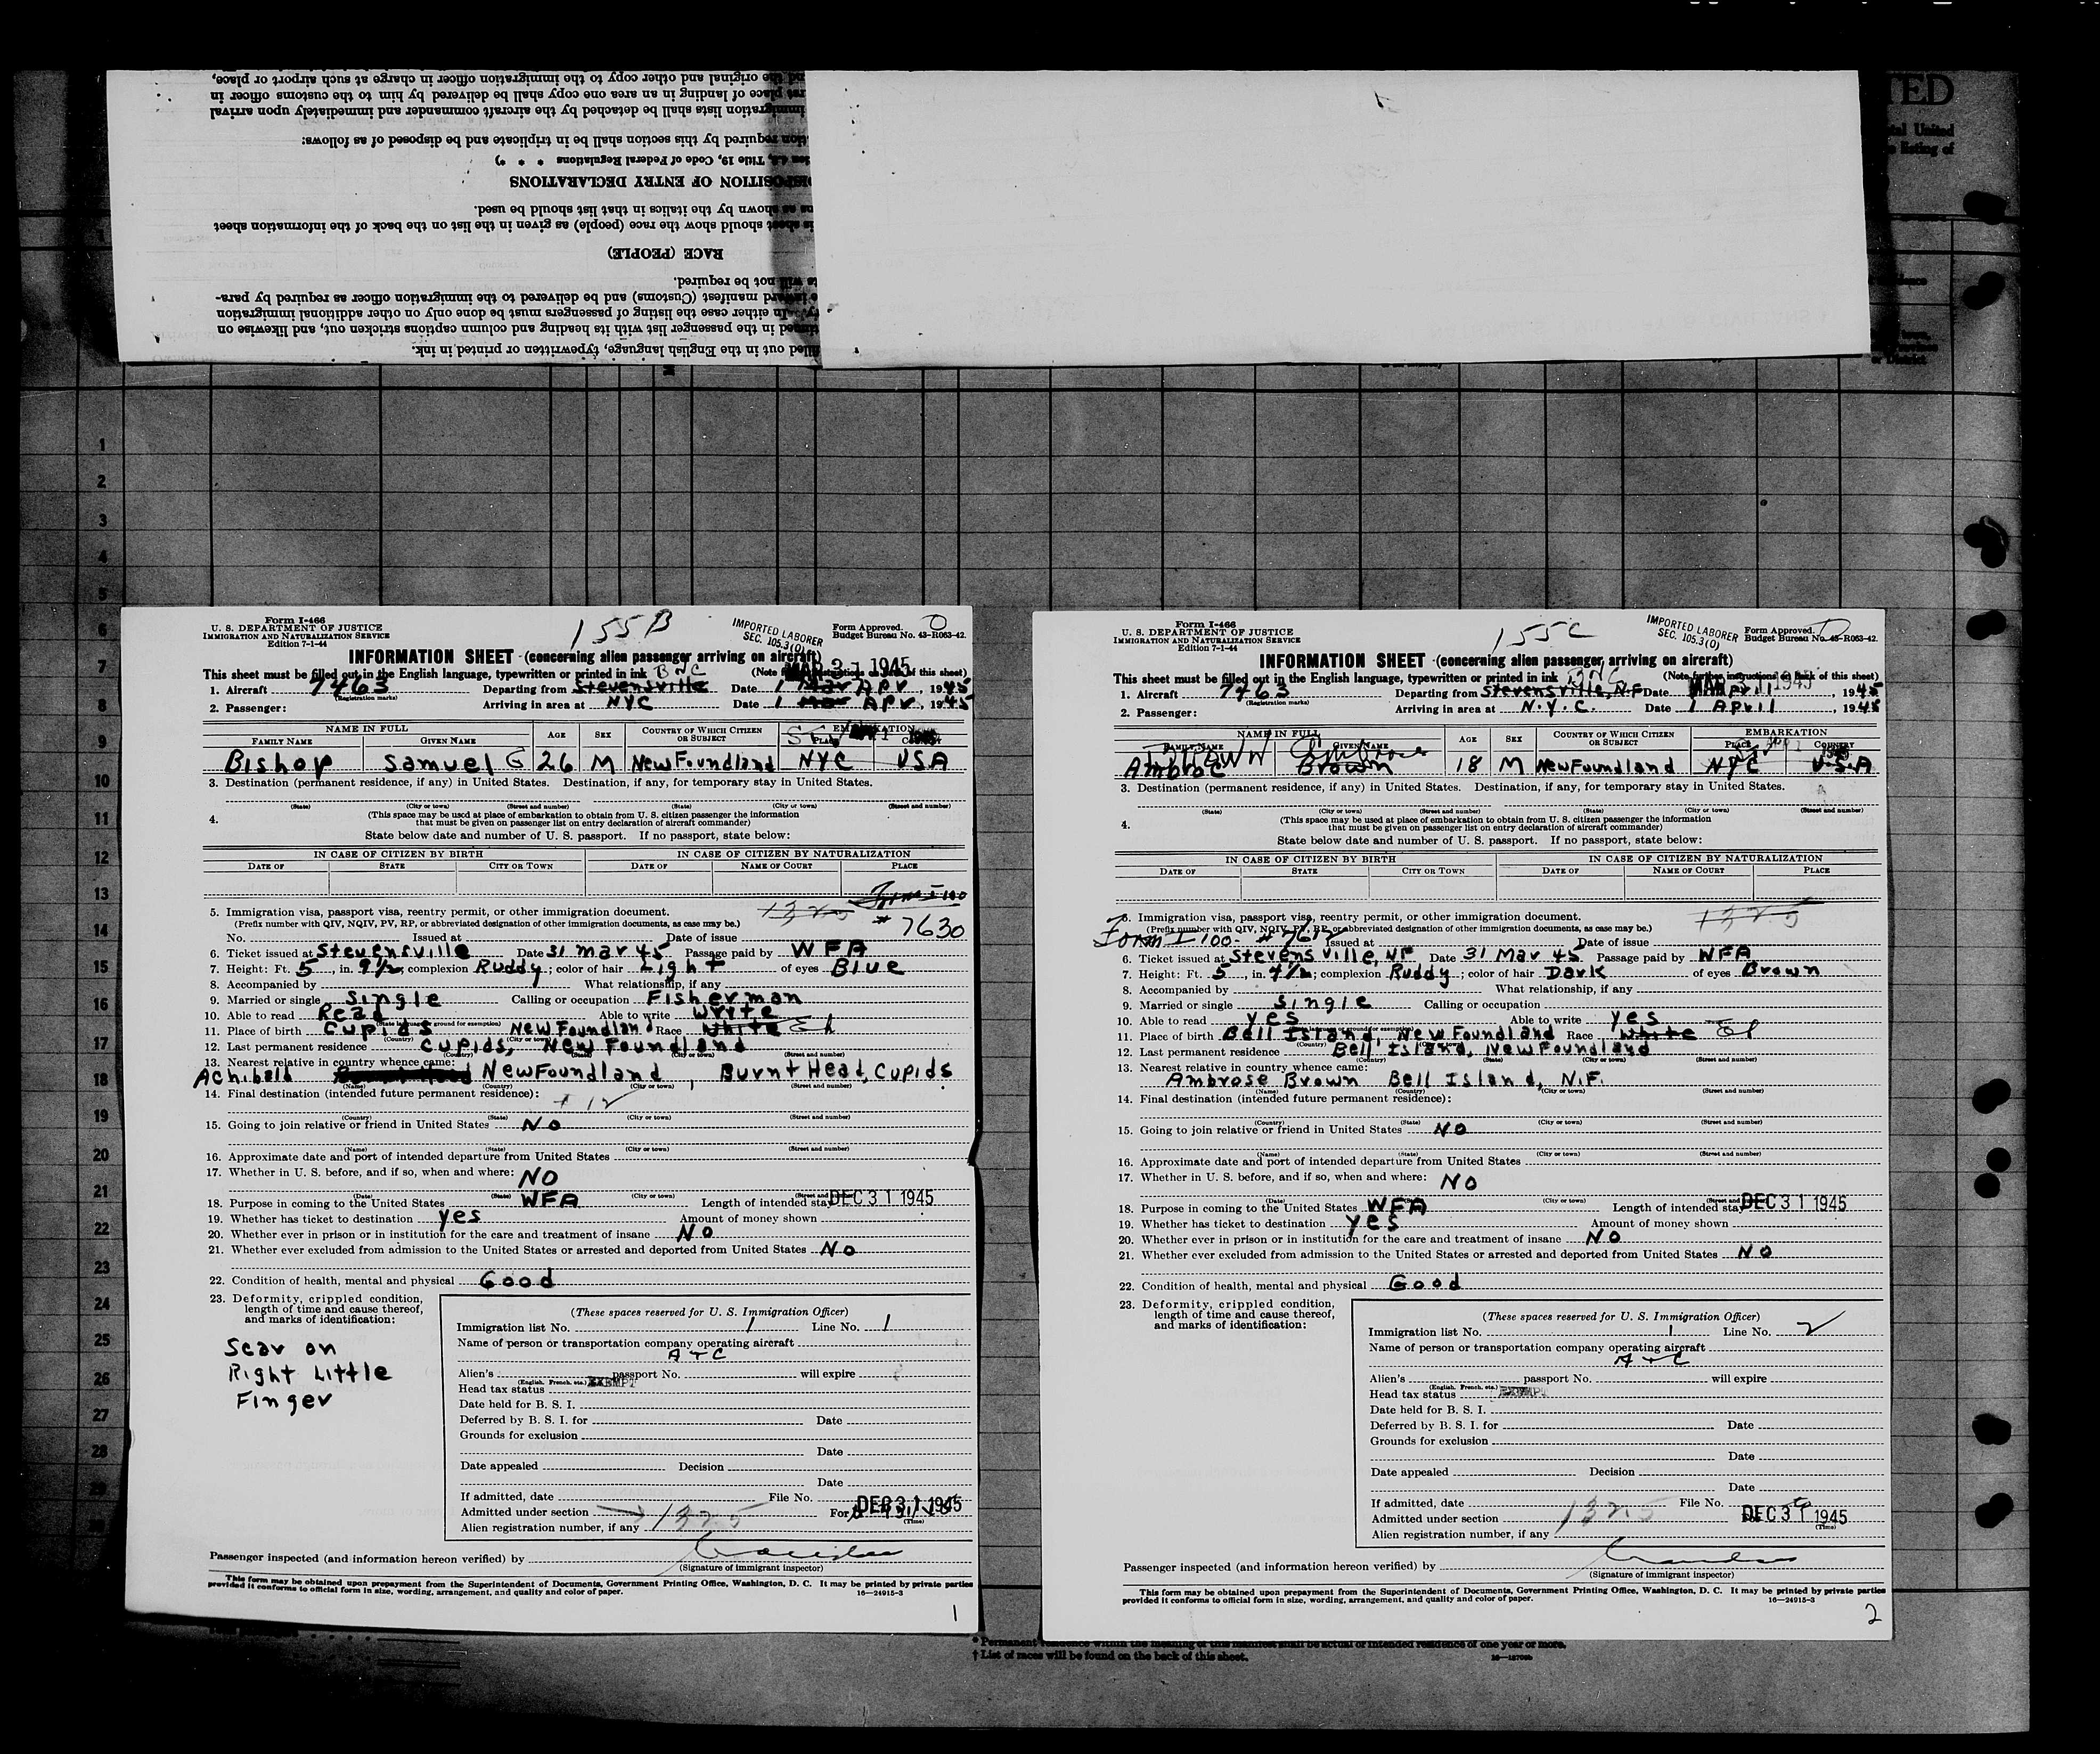 TED
and the original and other copy to the immigration officer in charge at such airport or place,
place of landing in an area one copy shall be delivered by him to the customs officer in
immigration lists shall be detached by the aircraft commander and immediately upon arrival
required by this section shall be in triplicate and be disposed of as follows:
Title 19, Code of Federal Regulations * * *)
DISPOSITION OF ENTRY DECLARATIONS
as shown by the italics in that list should be used.
sheet should show the race (people) as given in the list on the back of the information sheet
RACE (PEOPLE)
will not be required.
inward manifest (Customs) and be delivered to the immigration officer as required by para-
In either case the listing of passengers must be done only on other additional immigration
in the passenger list with its heading and column captions stricken out, and likewise on
filled out in the English language, typewritten or printed in ink.
Form I-466
U. S. DEPARTMENT OF JUSTICE
IMMIGRATION AND NATURALIZATION SERVICE
Edition 7-1-44
155B
IMPORTED LABORER
SEC. 105.3(0)
Form Approved.
Budget Bureau No. 43-R063-42.
INFORMATION SHEET (concerning alien passenger arriving on aircraft)
MAR 31 1945
This sheet must be filled out in the English language, typewritten or printed in ink
1. Aircraft 7463 Departing from Stevensville Date 1 Mar Apr, 1945
(Registration marks)
2. Passenger: Arriving in area at NYC Date 1 Mar Apr, 1945
NAME IN FULL AGE SEX COUNTRY OF WHICH CITIZEN OR SUBJECT EMBARKATION
FAMILY NAME GIVEN NAME PLACE COUNTRY
Bishop Samuel G 26 M NewFoundland NYC USA
3. Destination (permanent residence, if any) in United States. Destination, if any, for temporary stay in United States.
(State) (City or town) (Street and number) (State) (City or town) (Street and number)
4. (This space may be used at place of embarkation to obtain from U. S. citizen passenger the information
that must be given on passenger list on entry declaration of aircraft commander)
State below date and number of U. S. passport. If no passport, state below:
IN CASE OF CITIZEN BY BIRTH IN CASE OF CITIZEN BY NATURALIZATION
DATE OF STATE CITY OR TOWN DATE OF NAME OF COURT PLACE
Form I-100
5. Immigration visa, passport visa, reentry permit, or other immigration document. 1325 # 7630
(Prefix number with QIV, NQIV, PV, RP, or abbreviated designation of other immigration documents, as case may be.)
No. Issued at Date of issue
6. Ticket issued at Stevensville Date 31 Mar 45 Passage paid by WFA
7. Height: Ft. 5, in. 9½; complexion Ruddy; color of hair Light of eyes Blue
8. Accompanied by What relationship, if any
9. Married or single Single Calling or occupation Fisherman
10. Able to read Read Able to write Write
11. Place of birth Cupids NewFoundland Race White
12. Last permanent residence Cupids, New Foundland
13. Nearest relative in country whence came:
Achiball NewFoundland, Burnt Head, Cupids
(Name) (Country) (City or town) (Street and number)
14. Final destination (intended future permanent residence):
(Country) (State) (City or town) (Street and number)
15. Going to join relative or friend in United States No
(Name) (State) (City or town) (Street and number)
16. Approximate date and port of intended departure from United States
17. Whether in U. S. before, and if so, when and where: NO
(Date) (State) (City or town) (Street and number)
18. Purpose in coming to the United States WFA Length of intended stay DEC 31 1945
19. Whether has ticket to destination yes Amount of money shown
20. Whether ever in prison or in institution for the care and treatment of insane NO
21. Whether ever excluded from admission to the United States or arrested and deported from United States NO
22. Condition of health, mental and physical Good
23. Deformity, crippled condition,
length of time and cause thereof,
and marks of identification:
Scar on
Right Little
Finger
(These spaces reserved for U. S. Immigration Officer)
Immigration list No. 1 Line No. 1
Name of person or transportation company operating aircraft
ATC
Alien's passport No. will expire
(English, French, etc.)
Head tax status EXEMPT
Date held for B. S. I.
Deferred by B. S. I. for Date
Grounds for exclusion
Date
Date appealed Decision
Date
If admitted, date File No.
Admitted under section 1325 For DEC 31 1945
(Time)
Alien registration number, if any
Passenger inspected (and information hereon verified) by
(Signature of immigrant inspector)
This form may be obtained upon prepayment from the Superintendent of Documents, Government Printing Office, Washington, D. C. It may be printed by private parties
provided it conforms to official form in size, wording, arrangement, and quality and color of paper.
16—24915-3
1
Form I-466
U. S. DEPARTMENT OF JUSTICE
IMMIGRATION AND NATURALIZATION SERVICE
Edition 7-1-44
155C
IMPORTED LABORER
SEC. 105.3(0)
Form Approved.
Budget Bureau No. 43-R063-42.
INFORMATION SHEET (concerning alien passenger arriving on aircraft)
This sheet must be filled out in the English language, typewritten or printed in ink (Note further instructions on back of this sheet)
1. Aircraft 7463 Departing from Stevensville, N.F. Date April, 1945
(Registration marks)
2. Passenger: Arriving in area at N.Y.C. Date 1 April, 1945
NAME IN FULL AGE SEX COUNTRY OF WHICH CITIZEN OR SUBJECT EMBARKATION
FAMILY NAME GIVEN NAME PLACE COUNTRY
Brown Ambrose
Ambroc Brown 18 M NewFoundland NYC U.S.A
3. Destination (permanent residence, if any) in United States. Destination, if any, for temporary stay in United States.
(State) (City or town) (Street and number) (State) (City or town) (Street and number)
4. (This space may be used at place of embarkation to obtain from U. S. citizen passenger the information
that must be given on passenger list on entry declaration of aircraft commander)
State below date and number of U. S. passport. If no passport, state below:
IN CASE OF CITIZEN BY BIRTH IN CASE OF CITIZEN BY NATURALIZATION
DATE OF STATE CITY OR TOWN DATE OF NAME OF COURT PLACE
5. Immigration visa, passport visa, reentry permit, or other immigration document. 1325
(Prefix number with QIV, NQIV, PV, RP, or abbreviated designation of other immigration documents, as case may be.)
Form I 100- # 7612 Issued at Date of issue
6. Ticket issued at Stevens ville, NF Date 31 Mar 45 Passage paid by WFA
7. Height: Ft. 5, in. 4½; complexion Ruddy; color of hair Dark of eyes Brown
8. Accompanied by What relationship, if any
9. Married or single Single Calling or occupation
10. Able to read yes Able to write yes
11. Place of birth Bell Island, NewFoundland Race White
12. Last permanent residence Bell Island, NewFoundland
13. Nearest relative in country whence came:
Ambrose Brown Bell Island, N.F.
(Name) (Country) (City or town) (Street and number)
14. Final destination (intended future permanent residence):
(Country) (State) (City or town) (Street and number)
15. Going to join relative or friend in United States NO
(Name) (State) (City or town) (Street and number)
16. Approximate date and port of intended departure from United States
17. Whether in U. S. before, and if so, when and where: NO
(Date) (City or town) (Street and number)
18. Purpose in coming to the United States WFA Length of intended stay DEC 31 1945
19. Whether has ticket to destination yes Amount of money shown
20. Whether ever in prison or in institution for the care and treatment of insane NO
21. Whether ever excluded from admission to the United States or arrested and deported from United States NO
22. Condition of health, mental and physical Good
23. Deformity, crippled condition,
length of time and cause thereof,
and marks of identification:
(These spaces reserved for U. S. Immigration Officer)
Immigration list No. 1 Line No. 2
Name of person or transportation company operating aircraft
ATC
Alien's passport No. will expire
(English, French, etc.)
Head tax status EXEMPT
Date held for B. S. I.
Deferred by B. S. I. for Date
Grounds for exclusion
Date
Date appealed Decision
Date
If admitted, date File No.
Admitted under section 1325 DEC 31 1945
(Time)
Alien registration number, if any
Passenger inspected (and information hereon verified) by
(Signature of immigrant inspector)
This form may be obtained upon prepayment from the Superintendent of Documents, Government Printing Office, Washington, D. C. It may be printed by private parties
provided it conforms to official form in size, wording, arrangement, and quality and color of paper.
16—24915-3
2
* Permanent residence within the meaning of this manifest shall be actual or intended residence of one year or more.
† List of races will be found on the back of this sheet.